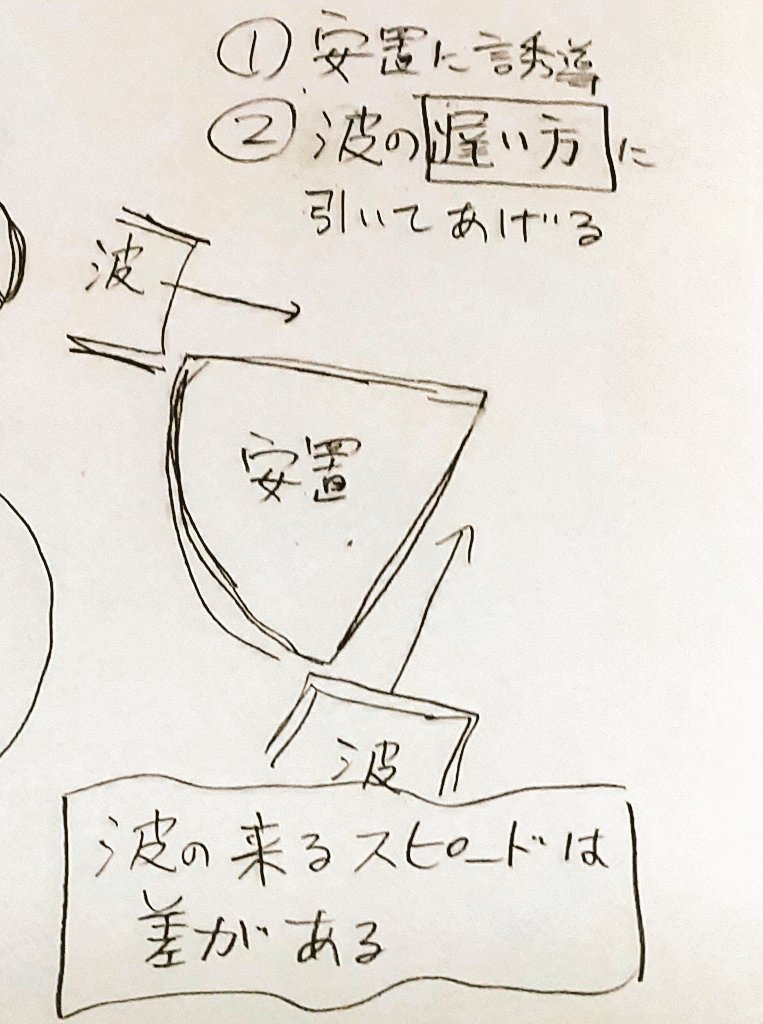 ① 安置に誘導
② 波の遅い方に
引いてあげる
波
安置
波
波の来るスピードは
差がある